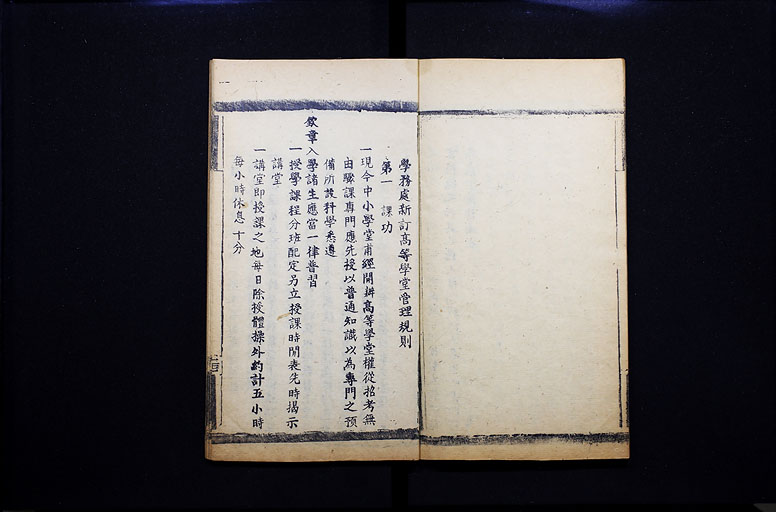 學務處新訂高等學堂管理規則
第一　課功
一現今中小學堂甫經開辦高等學堂權從招考無
由驟課專門應先授以普通知識以為專門之預
備所設科學悉遵
欽章入學諸生應當一律普習
一授學課程分班配定另立授課時間表先時揭示
講堂
一講室即授課之地每日除授體操外約計五小時
每小時休息十分